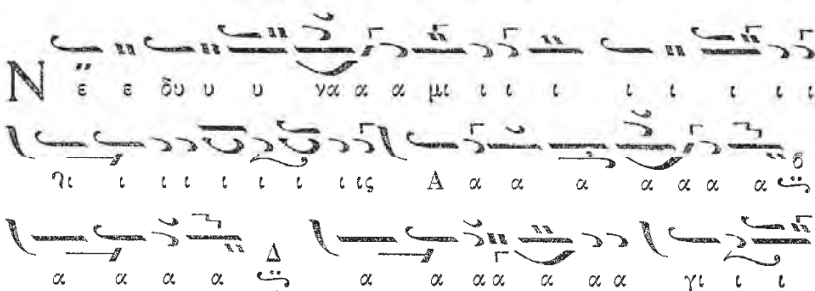 Ν ε ε δυ υ υ να α α μι ι ι ι ι ι ι ι ι
ηι ι ι ι ι ι ι ι ις Α α α α α α α α δ
α α α α Δ α α α α α α α γι ι ι